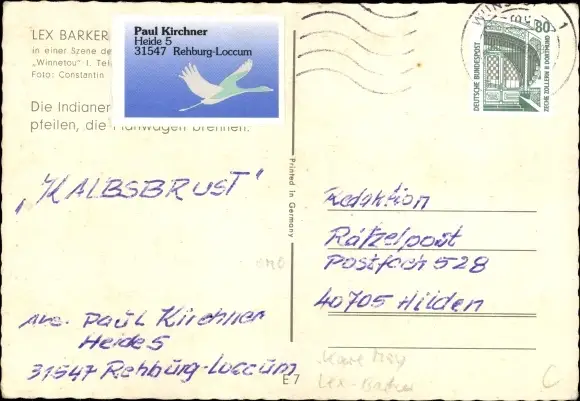 LEX BARKER
in einer Szene de
"Winnetou" I. Tei
Foto: Constantin
Die Indianer
pfeilen, die Planwagen brennen.
Paul Kirchner
Heide 5
31547 Rehburg-Loccum
80
DEUTSCHE BUNDESPOST
ZECHE ZOLLERN II DORTMUND
Printed in Germany
„KALBSBRUST"
Abs. Paul Kirchner
Heide 5
31547 Rehburg-Loccum
Redaktion
Rätzelpost
Postfach 528
40705 Hilden
E 7
Karl May
Lex-Barker
C